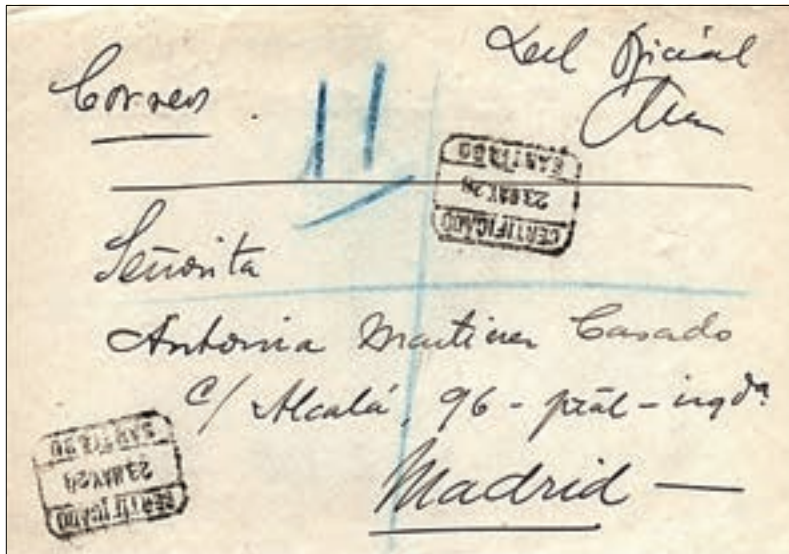 Correos.
Oficial
CERTIFICADO
23 MAY. 28
SANTIAGO
Señorita
Antonia Martinez Casado
c/ Alcalá, 96 - pral - izqdª
Madrid —
CERTIFICADO
23 MAY. 28
SANTIAGO